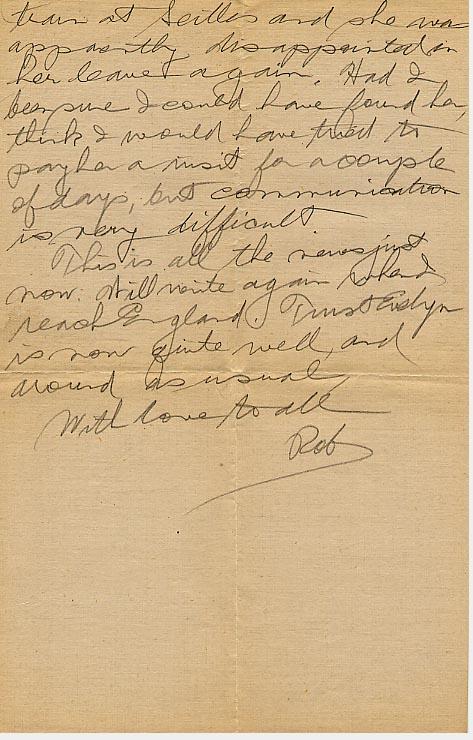 train at Seilles and she was
apparently disappointed in
her leave again. Had I
been sure I could have found her,
think I would have tried to
pay her a visit for a couple
of days, but communication
is very difficult
This is all the news just
now. Will write again when I
reach England. Trust Evelyn
is now quite well, and
around as usual,
With love to all
Rob